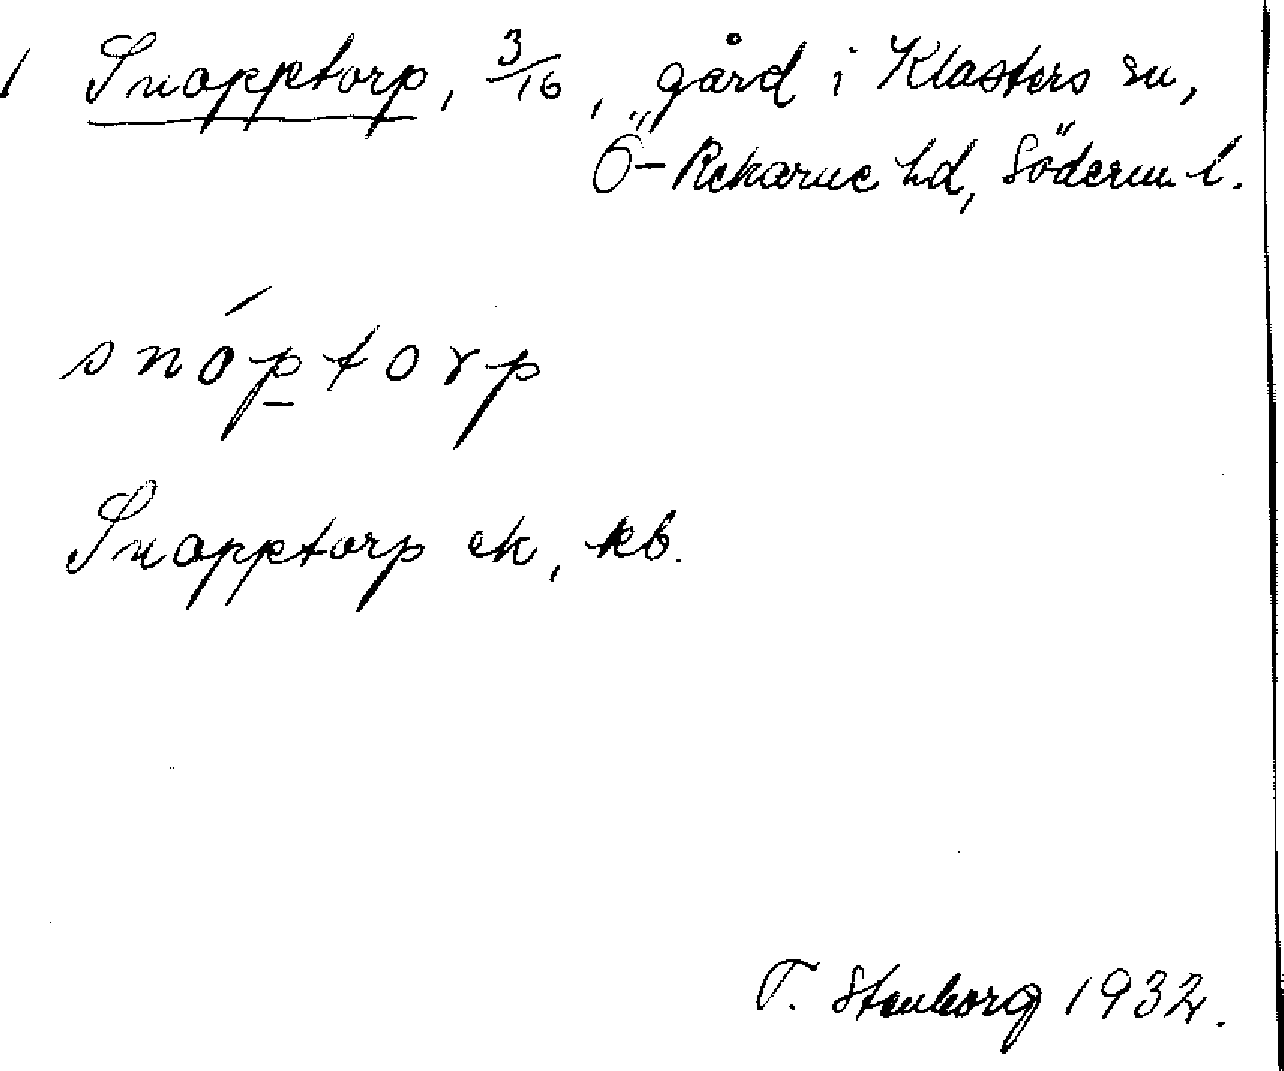 1 Snopptorp, 3/16, gård i Klosters sn,
Ö-Rekarne hd, Söderm l.
snóp̱torp
Snopptorp ek, kb.
T. Stenborg 1932.